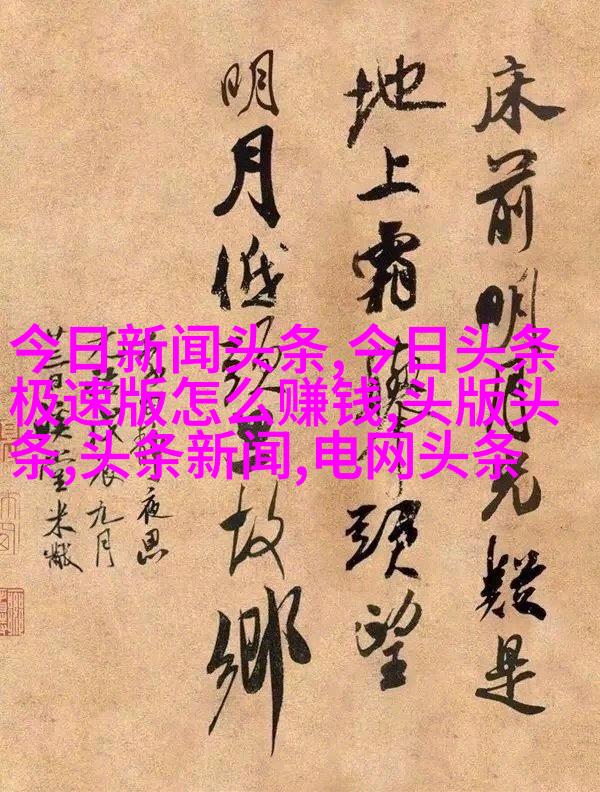 床前明月光疑是
地上霜舉頭望
明月低頭思故鄉
夜思
九月
廿三日 米黻
今日新闻头条,今日头条
极速版怎么赚钱,头版头
条,头条新闻,电网头条